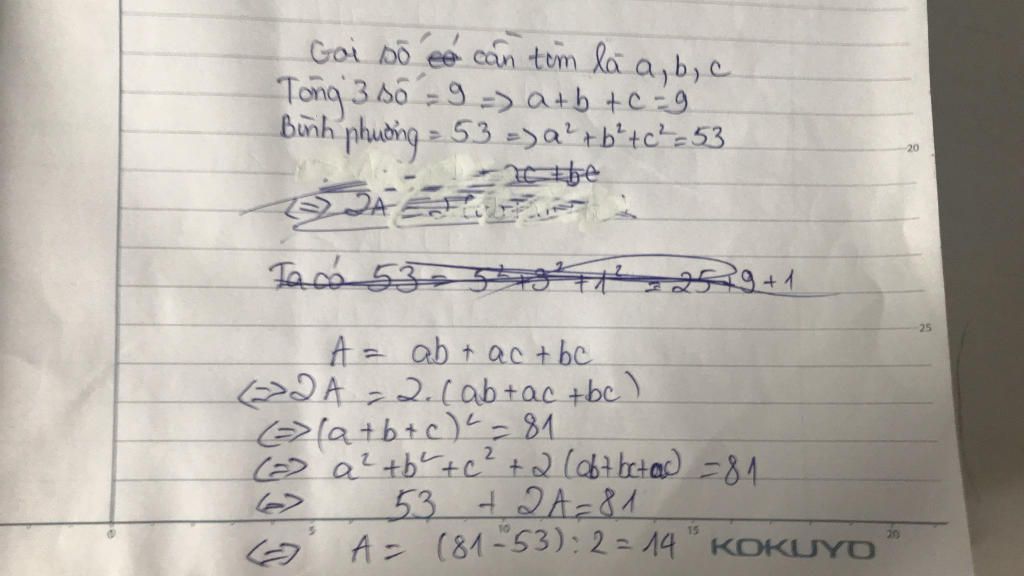 Gọi số cần tìm là a, b, c
Tổng 3 số = 9 => a + b + c = 9
Bình phương = 53 => a² + b² + c² = 53
<=> 2A =
Ta có 53 = 5² + 3² + 1² = 25 + 9 + 1
A = ab + ac + bc
<=> 2A = 2.(ab + ac + bc)
<=> (a + b + c)² = 81
<=> a² + b² + c² + 2(ab + bc + ac) = 81
<=> 53 + 2A = 81
<=> A = (81 - 53) : 2 = 14
KOKUYO
0 5 10 15 20
20
25